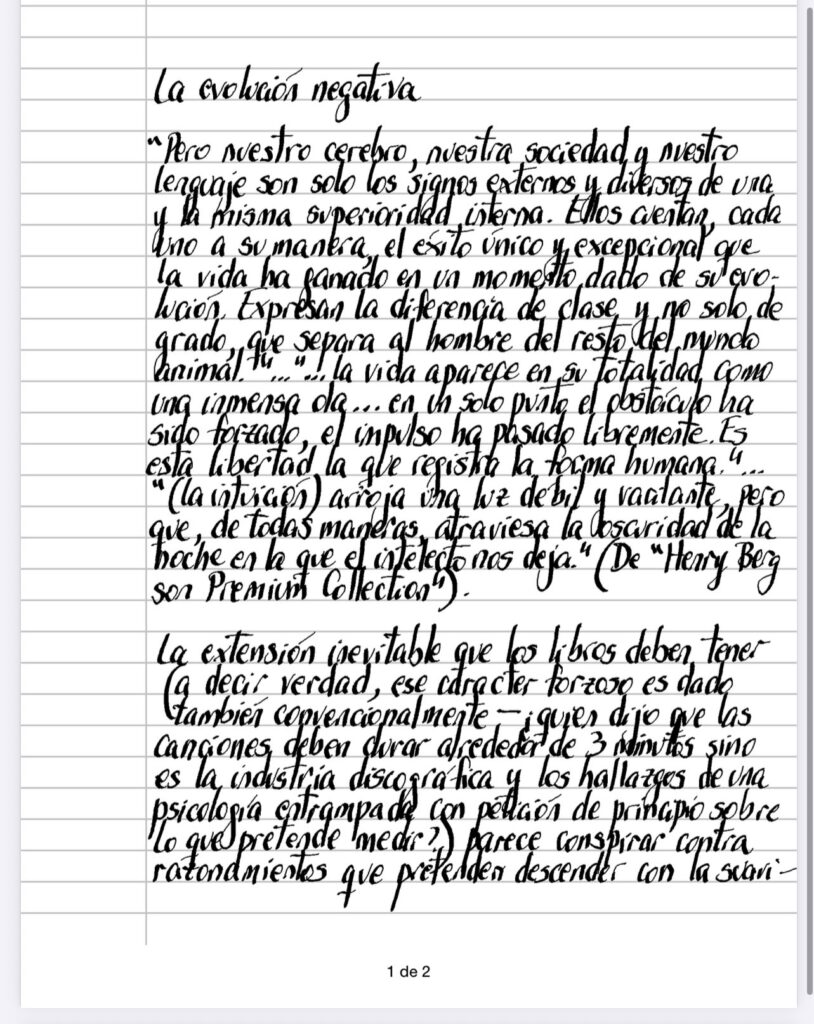 La evolución negativa
"Pero nuestro cerebro, nuestra sociedad y nuestro
lenguaje son solo los signos externos y diversos de una
y la misma superioridad interna. Ellos cuentan, cada
uno a su manera, el éxito único y excepcional que
la vida ha ganado en un momento dado de su evo-
lución. Expresan la diferencia de clase, y no solo de
grado, que separa al hombre del resto del mundo
animal."..."...la vida aparece en su totalidad como
una inmensa ola... en un solo punto el obstáculo ha
sido forzado, el impulso ha pasado libremente. Es
esta libertad la que registra la forma humana."...
"(la intuición) arroja una luz débil y vacilante, pero
que, de todas maneras, atraviesa la oscuridad de la
noche en la que el intelecto nos deja." (De "Henry Berg
son Premium Collection").
La extensión inevitable que los libros deben tener
(a decir verdad, ese carácter forzoso es dado
también convencionalmente —¿quien dijo que las
canciones deben durar alrededor de 3 minutos sino
es la industria discográfica y los hallazgos de una
psicología entrampada con petición de principio sobre
lo que pretende medir?) parece conspirar contra
razonamientos que pretenden descender con la suavi-
1 de 2